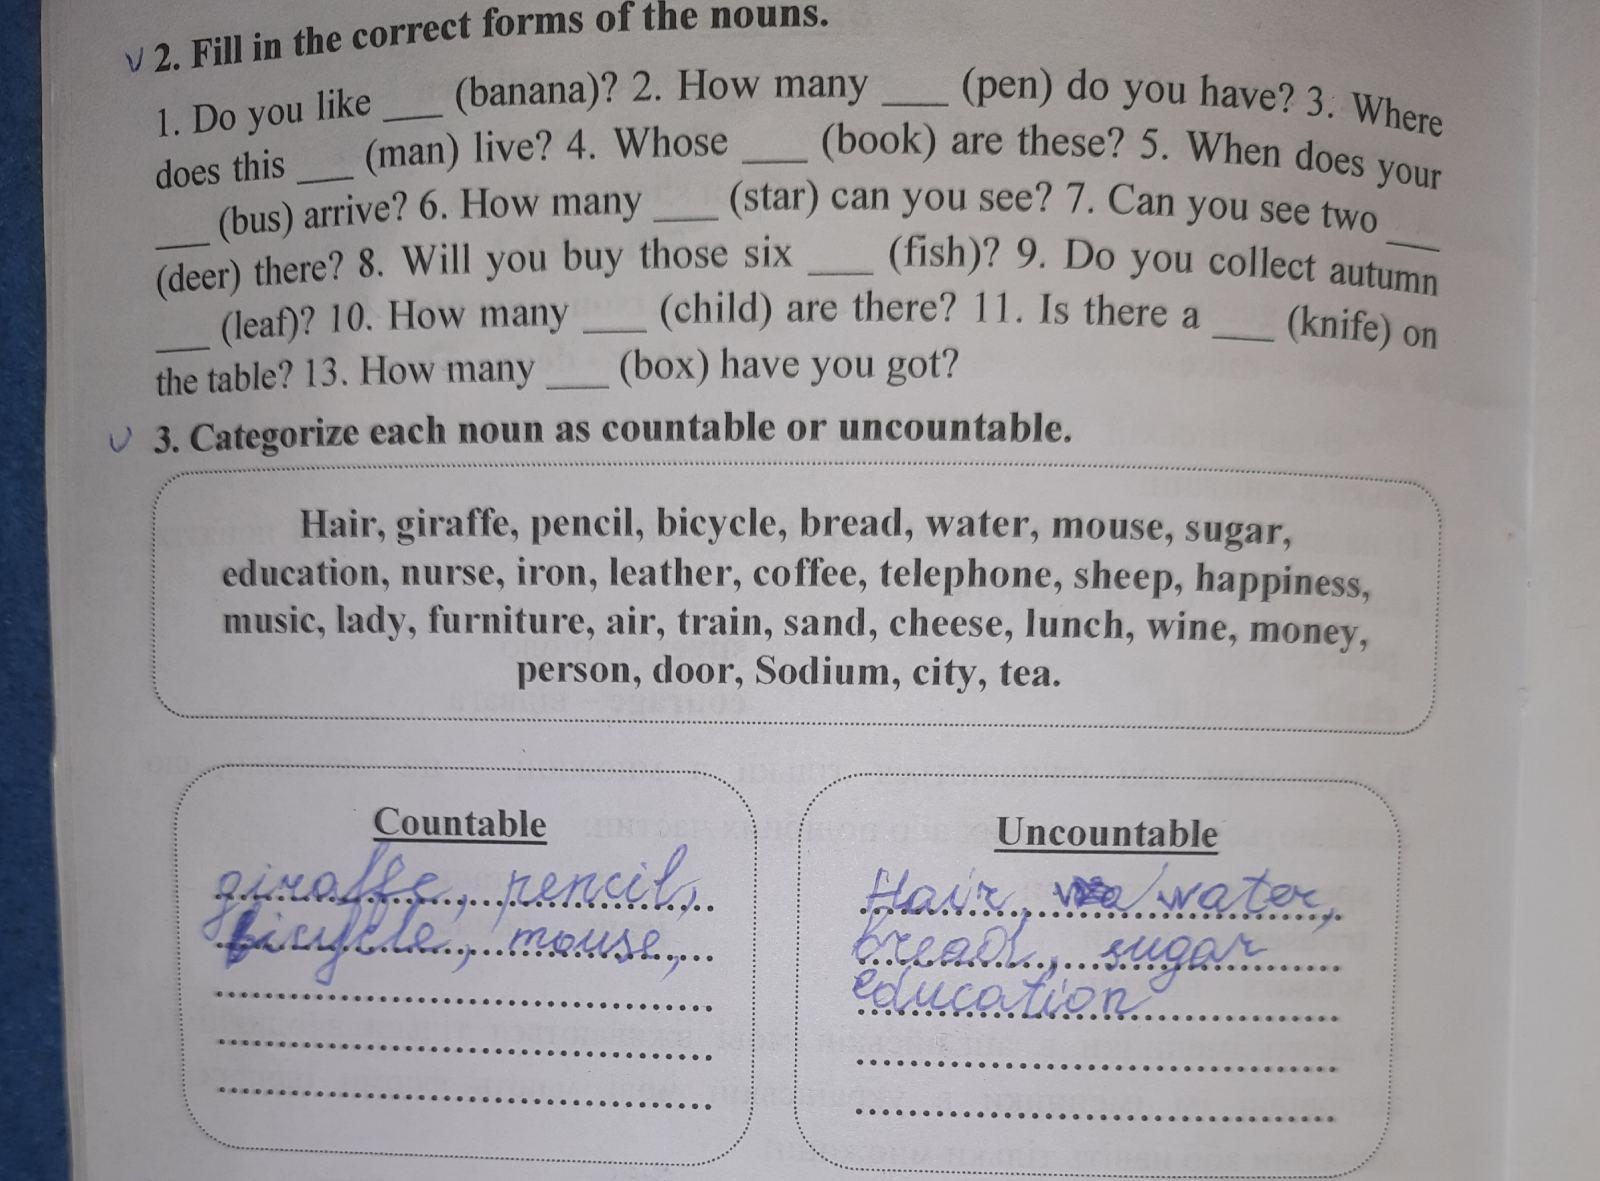 2. Fill in the correct forms of the nouns.
1. Do you like ___ (banana)? 2. How many ___ (pen) do you have? 3. Where
does this ___ (man) live? 4. Whose ___ (book) are these? 5. When does your
___ (bus) arrive? 6. How many ___ (star) can you see? 7. Can you see two ___
(deer) there? 8. Will you buy those six ___ (fish)? 9. Do you collect autumn
___ (leaf)? 10. How many ___ (child) are there? 11. Is there a ___ (knife) on
the table? 13. How many ___ (box) have you got?
3. Categorize each noun as countable or uncountable.
Hair, giraffe, pencil, bicycle, bread, water, mouse, sugar,
education, nurse, iron, leather, coffee, telephone, sheep, happiness,
music, lady, furniture, air, train, sand, cheese, lunch, wine, money,
person, door, Sodium, city, tea.
Countable
giraffe, pencil,
bicycle, mouse,
Uncountable
Hair, water,
bread, sugar
education